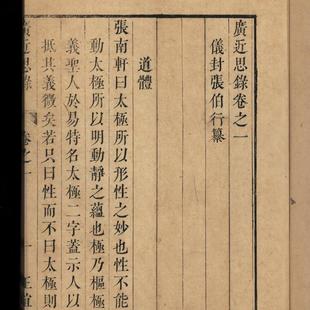 廣近思錄卷之一
儀封張伯行纂
道體
張南軒曰太極所以形性之妙也性不能
動太極所以明動靜之蘊也極乃樞極
義聖人於易特名太極二字蓋示人以
抵其義微矣若只曰性而不曰太極則
廣近思錄 卷之一 一 正誼